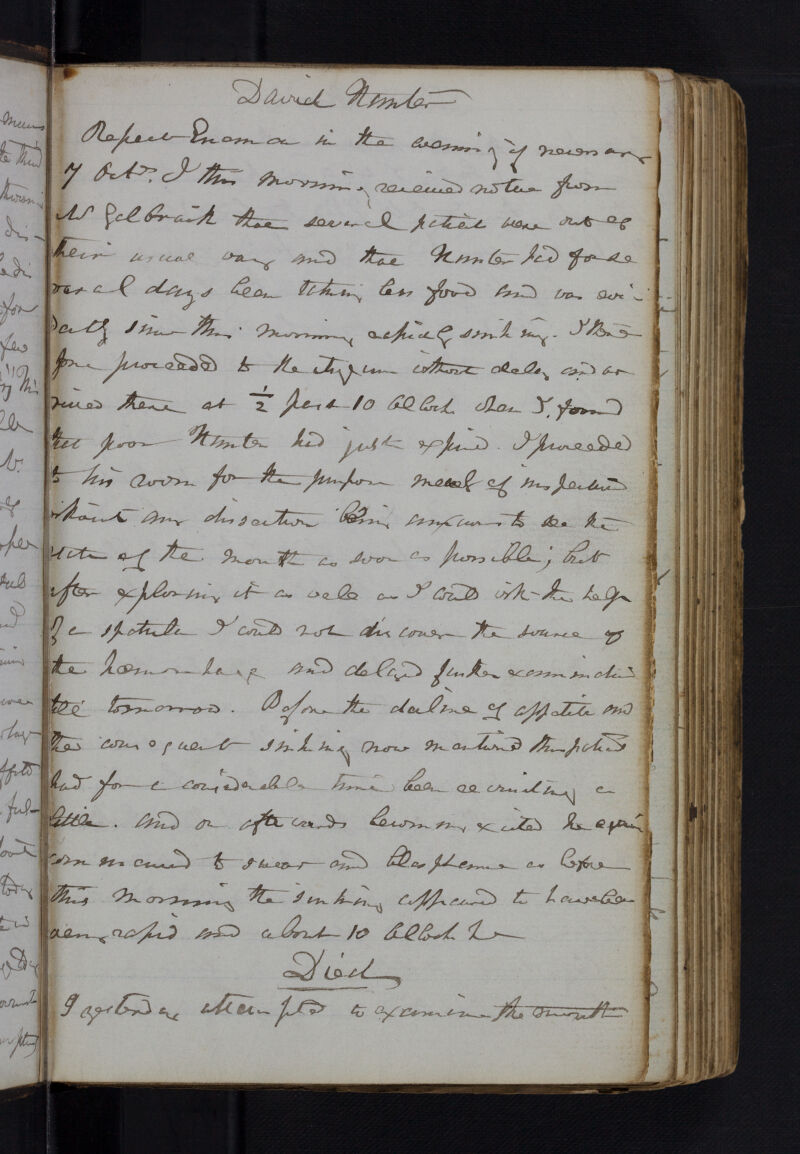 David Hunter
Repeat Enema in the evening if necessary
7 Octr. I this morning received notice from
Mr Galbraith that several patients were out of
their usual way and that Hunter had for se
veral days been taking less food and was evi
dently since this morning rapidly sinking. I there
fore proceeded to the asylum without delay and ar
rived there at ½ past 10 oClock when I found
that poor Hunter had just expired. I proceeded
to his room for the purpose merely of inspection
without any dissection being anxious to see the
state of the mouth as soon as possible; but
after exploring it as well as I could with the help
of a spatula I could not discover the source of
the hæmorrhage and delayed further examination
till tomorrow. Before the decline of appetite and
the consequent sinking now mentioned this patient
had for a considerable time been recruiting a
little. and on afterwards becoming excited he again
commenced to swear and blaspheme as before
this morning the sinking appeared to have been
very rapid and about 10 oClock he
Died
I yesterday attempted to examine the mouth
mouth
the third
dis-
for
few
ful-
today